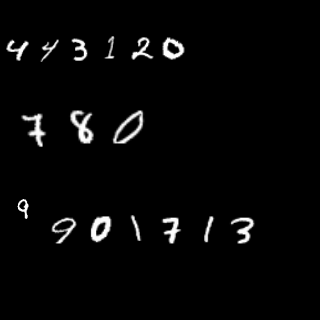 443120
780
9
901713